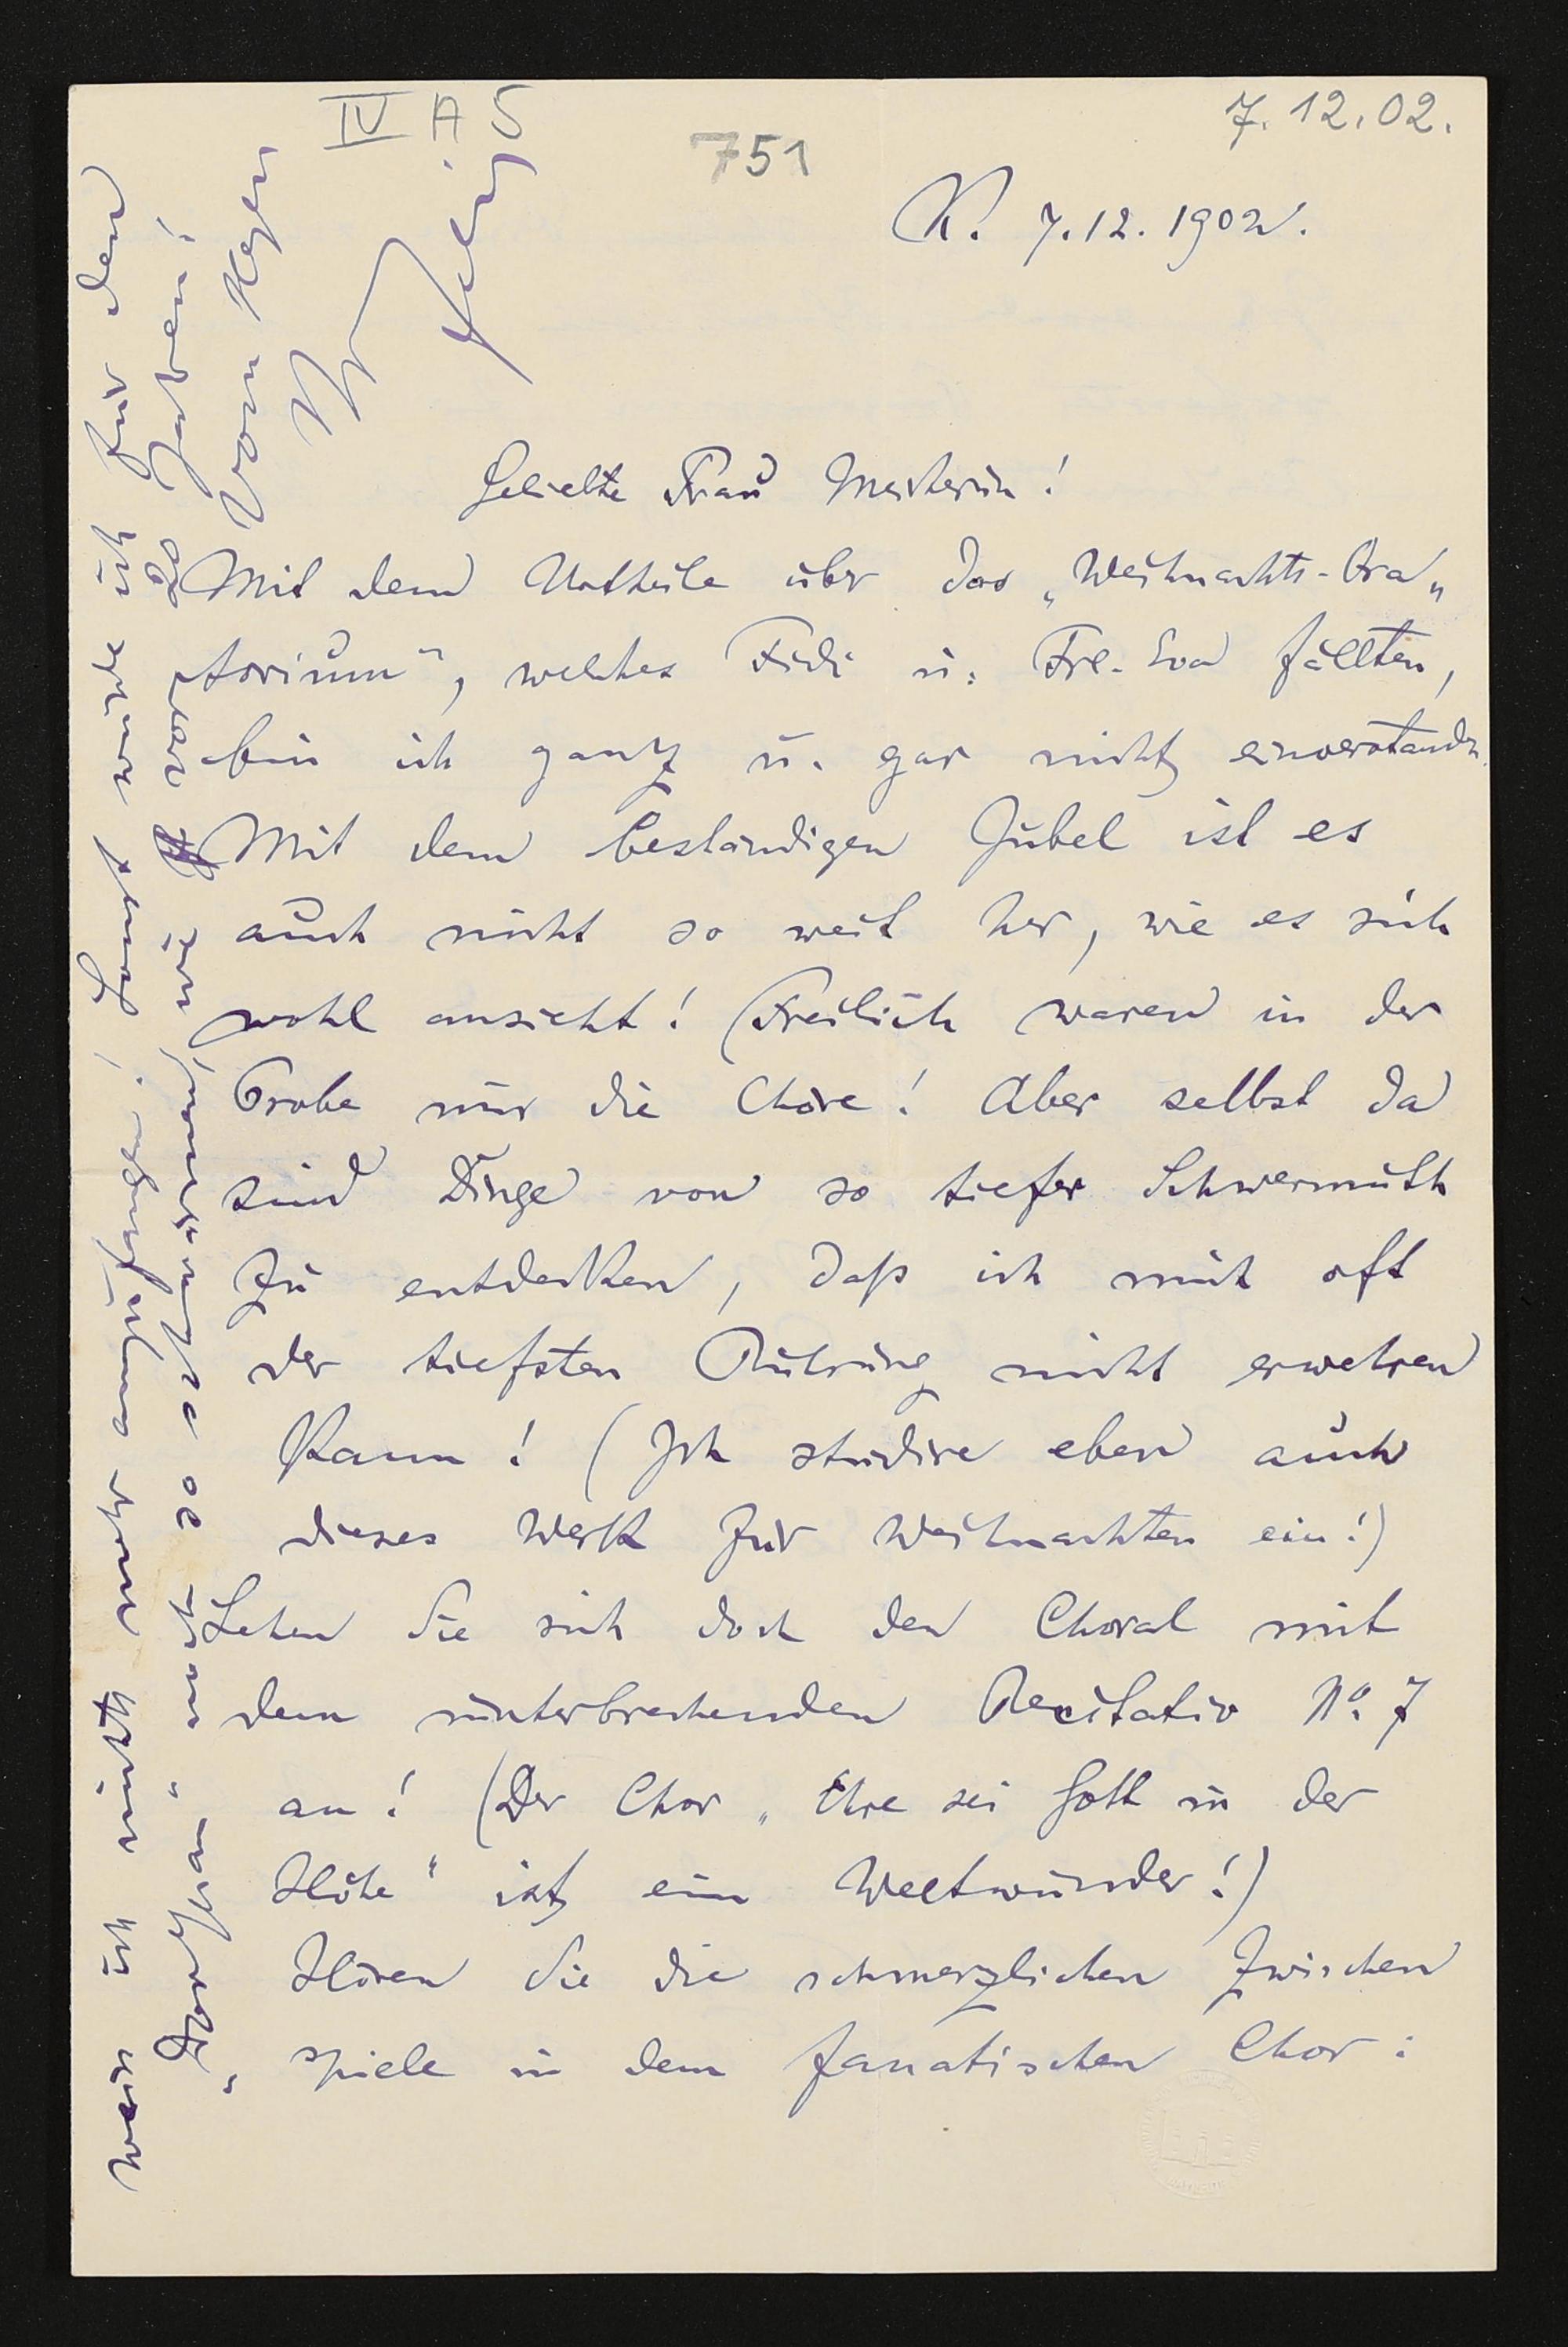 IV A 5
751
7.12.02.
K. 7.12.1902.
Geliebte Frau Meisterin!
Mit dem Urtheile über das „Weihnachts-Ora„
torium“, welches Fidi u. Frl. Eva fällten,
bin ich ganz u. gar nicht einverstanden.
Mit dem beständigen Jubel ist es
auch nicht so weit her, wie es sich
wohl ansieht! (Freilich waren in der
Probe nur die Chöre! Aber selbst da
sind Dinge von so tiefer Schwermuth
zu entdecken, daß ich mich oft
der tiefsten Rührung nicht erwehren
kann! (Ich studire eben auch
dieses Werk für Weihnachten ein!)
Sehen Sie sich doch den Choral mit
dem unterbrechenden Recitativ No. 7
an! (Der Chor „Ehre sei Gott in der
Höhe“ ist ein Weltwunder!)
Hören Sie die schmerzlichen Zwischen
spiele in dem fanatischen Chor:
weiß ich nichts mehr anzufangen! Sonst würde ich für den
„Dorfjan“ noch so schwärmen, wie Sie es
Von Herzen
Ihr